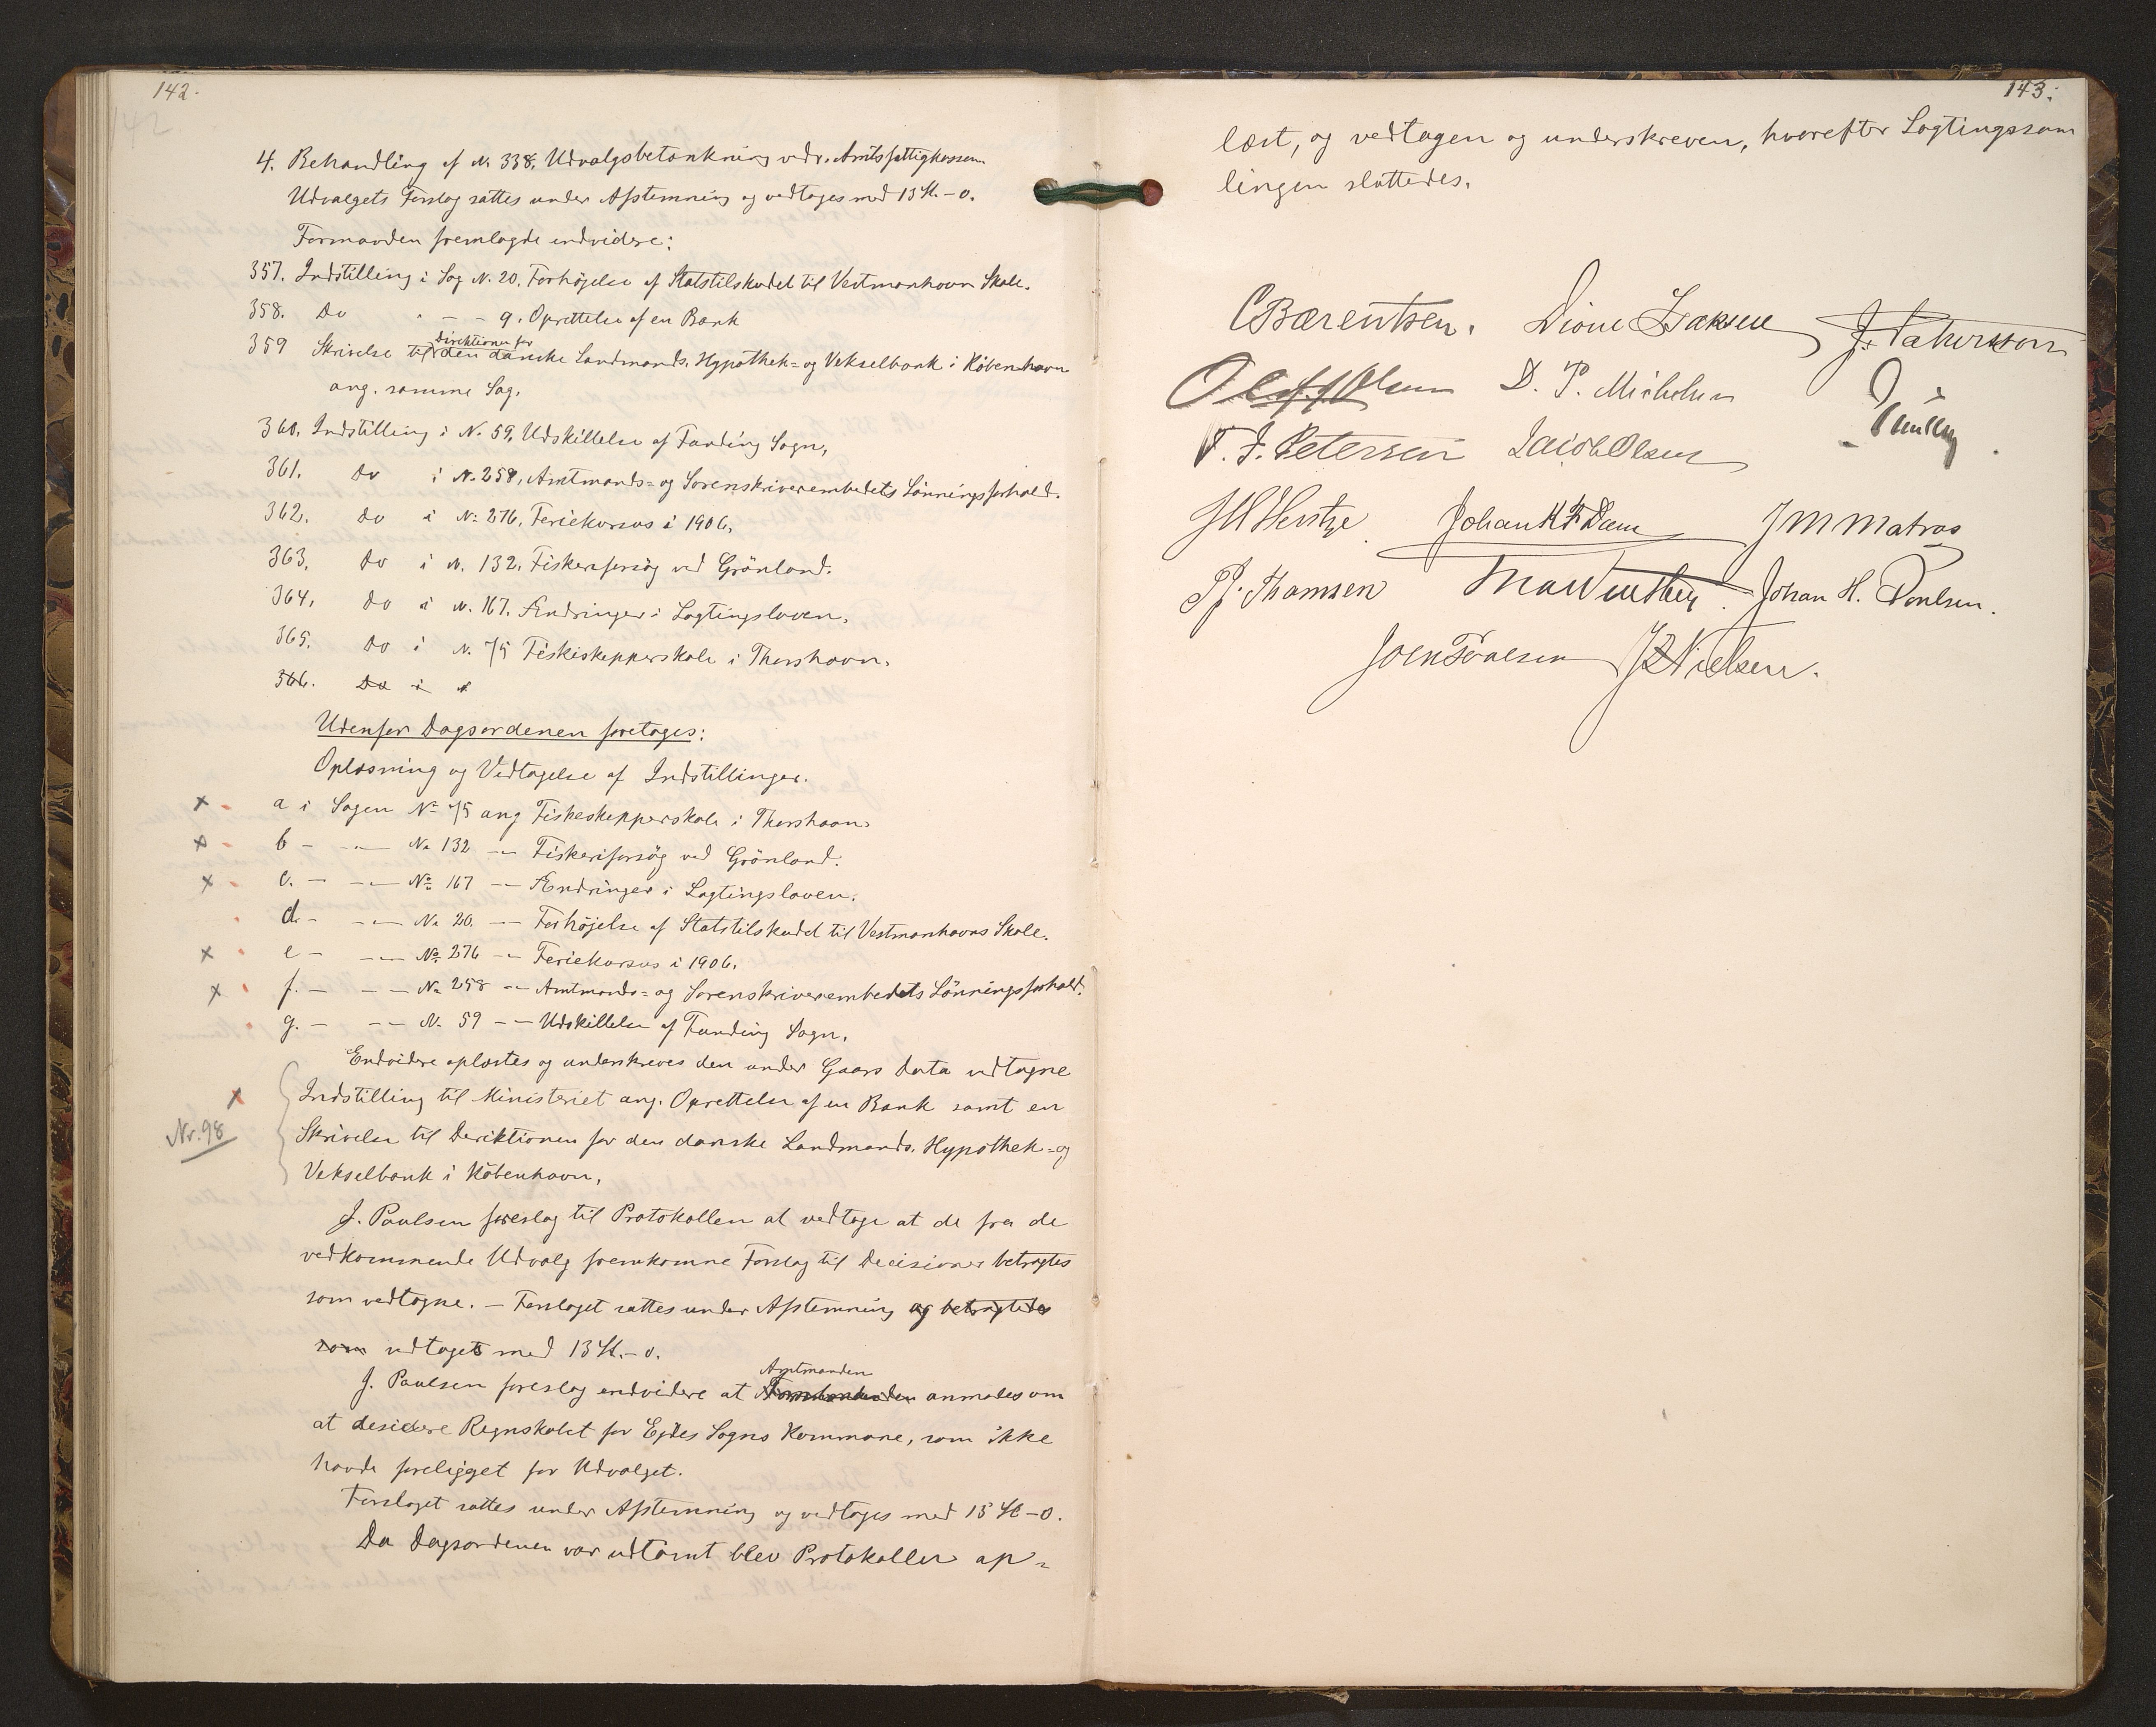 142.
142
4. Behandling af N. 338, Udvalgsbetænkning vedr. Amtsfattigkassen.
Udvalgets Forslag sattes under Afstemning og vedtoges med 13 St. – 0.
Formanden fremlagde endvidere:
357. Indstilling i Sag N. 20. Forhöjelse af Statstilskudet til Vestmanhavn Skole.
358. Do - — — 9. Oprettelse af en Bank
Direktionen for
359 Skrivelse til den danske Landmands, Hypothek= og Vekselbank i Köbenhavn
ang. samme Sag.
360. Indstilling i N. 59, Udskillelse af Funding Sogn,
361. Do i N. 258, Amtmands= og Sorenskriverembedets Lönningsforhold.
362. Do i N. 276, Feriekursus i 1906,
363. Do i N. 132, Fiskeriforsög ved Grönland.
364, Do i N. 167. Ændringer i Lagtingsloven,
365. Do i N. 75 Fiskiskipperskole i Thorshavn.
366. Do i N
Udenfor Dagsordenen foretoges:
Oplæsning og Vedtagelse af Indstillinger.
a i Sagen No 75 ang Fiskeskipperskole i Thorshavn.
b — — — No 132 — — Fiskeriforsög ved Grönland.
c. — — — No 167 — — Ændringer i Lagtingsloven.
d. — — — No 20. — — Forhöjelse af Statstilskudet til Vestmanhavns Skole.
e — — — No 276 — — Feriekursus i 1906.
f. — — — No 258 — — Amtmands= og Sorenskriverembedets Lönningsforhold.
g. — — — N. 59 — — Udskillelse af Funding Sogn.
Endvidere oplæstes og underskreves den under Gaars Dato vedtagne
Indstilling til Ministeriet ang. Oprettelse af en Bank samt en
Nr. 98
Skrivelse til Deriktionen for den danske Landmands, Hypothek= og
Vekselbank i Köbenhavn,
J. Paulsen foreslog til Protokollen at vedtage at de fra de
vedkommende Udvalg fremkomne Forslag til Decisioner betragtes
som vedtagne. — Forslaget sattes under Afstemning og betragtedes
som vedtoges med 13 St. – 0.
Amtmanden
J. Paulsen foreslog endvidere at anmodes om
at desidere Regnskabet for Ejdes Sogns Kommune, som ikke
havde foreligget for Udvalget.
Forslaget sattes under Afstemning og vedtoges med 13 St – 0.
Da Dagsordenen var udtömt blev Protokollen op=
143.
læst, og vedtagen og underskreven, hvorefter Lagtingssam
lingen sluttedes.
C Bærentsen. Dione Isaksen J. Patursson
Oliff Olsen D. P. Michelsen
T. J. Petersen Jacob Olsen
Johan K F Dam J M Matras
Pf. Thomsen Johan H. Poulsen.
Joen Poulsen J Nielsen.